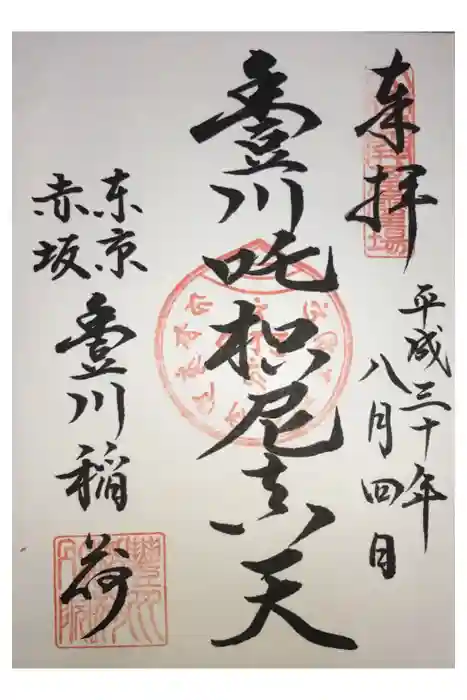 奉拝
平成三十年
八月四日
豊川吒枳尼真天
东京
赤坂
豊川稲荷